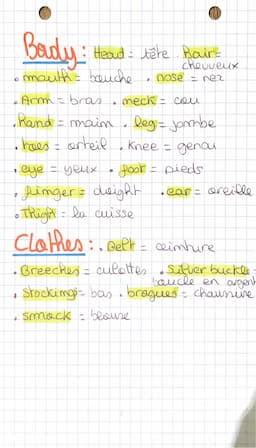 Body : Head = tête . Hair =
cheuveux
. mouth = bouche . nose = nez
. Arm = bras . neck = cou
. Hand = main . leg = jambe
. toes = orteil . Knee = genou
. eye = yeux . foot = pieds
. finger = doight . ear = oreille
. Thigh = la cuisse
Clothes : . Belt = ceinture
. Breeches = culottes . Silver buckle =
boucle en argent
. Stockings = bas . brogues = chaussure
. smock = blouse